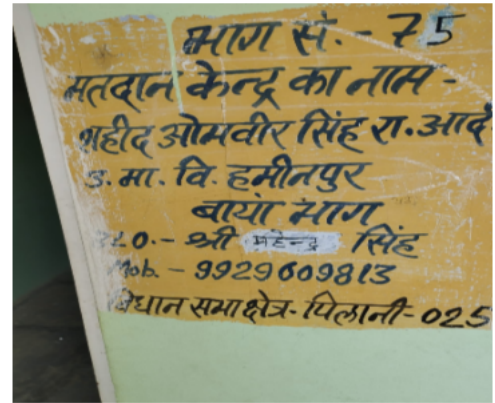 भाग सं.- 75
मतदान केन्द्र का नाम -
शहीद ओमवीर सिंह रा. आद
उ. मा. वि. हमीनपुर
बायां भाग
BLO. - श्री महेन्द्र सिंह
Mob. - 9929609813
विधान सभा क्षेत्र- पिलानी- 025